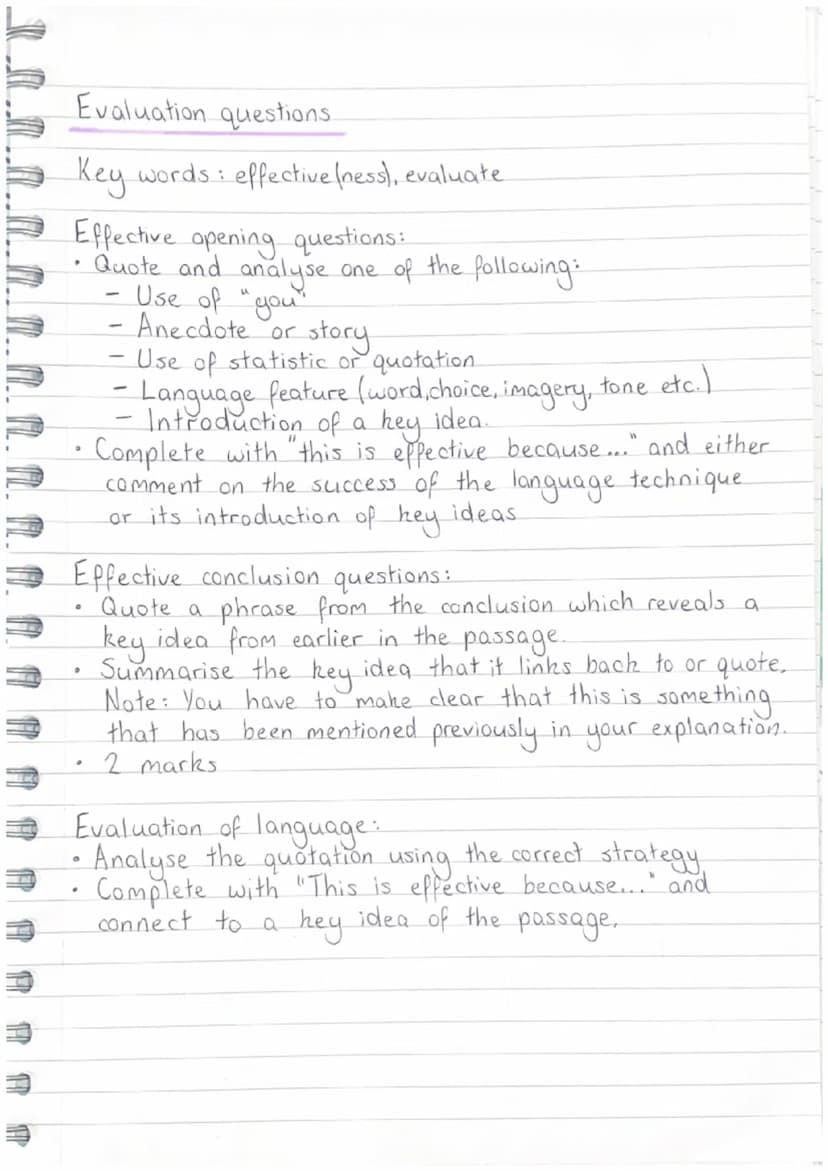 Evaluation questions
Key words: effective(ness), evaluate
Effective opening questions:
• Quote and analyse one of the following:
- Use of "you"
- Anecdote or story
- Use of statistic or quotation
- Language feature (word, choice, imagery, tone etc.)
- Introduction of a key idea.
• Complete with "this is effective because..." and either
comment on the success of the language technique
or its introduction of key ideas
Effective conclusion questions:
• Quote a phrase from the conclusion which reveals a
key idea from earlier in the passage.
• Summarise the key idea that it links back to or quote.
Note: You have to make clear that this is something
that has been mentioned previously in your explanation.
• 2 marks
Evaluation of language:
• Analyse the quotation using the correct strategy
• Complete with "This is effective because..." and
connect to a key idea of the passage.